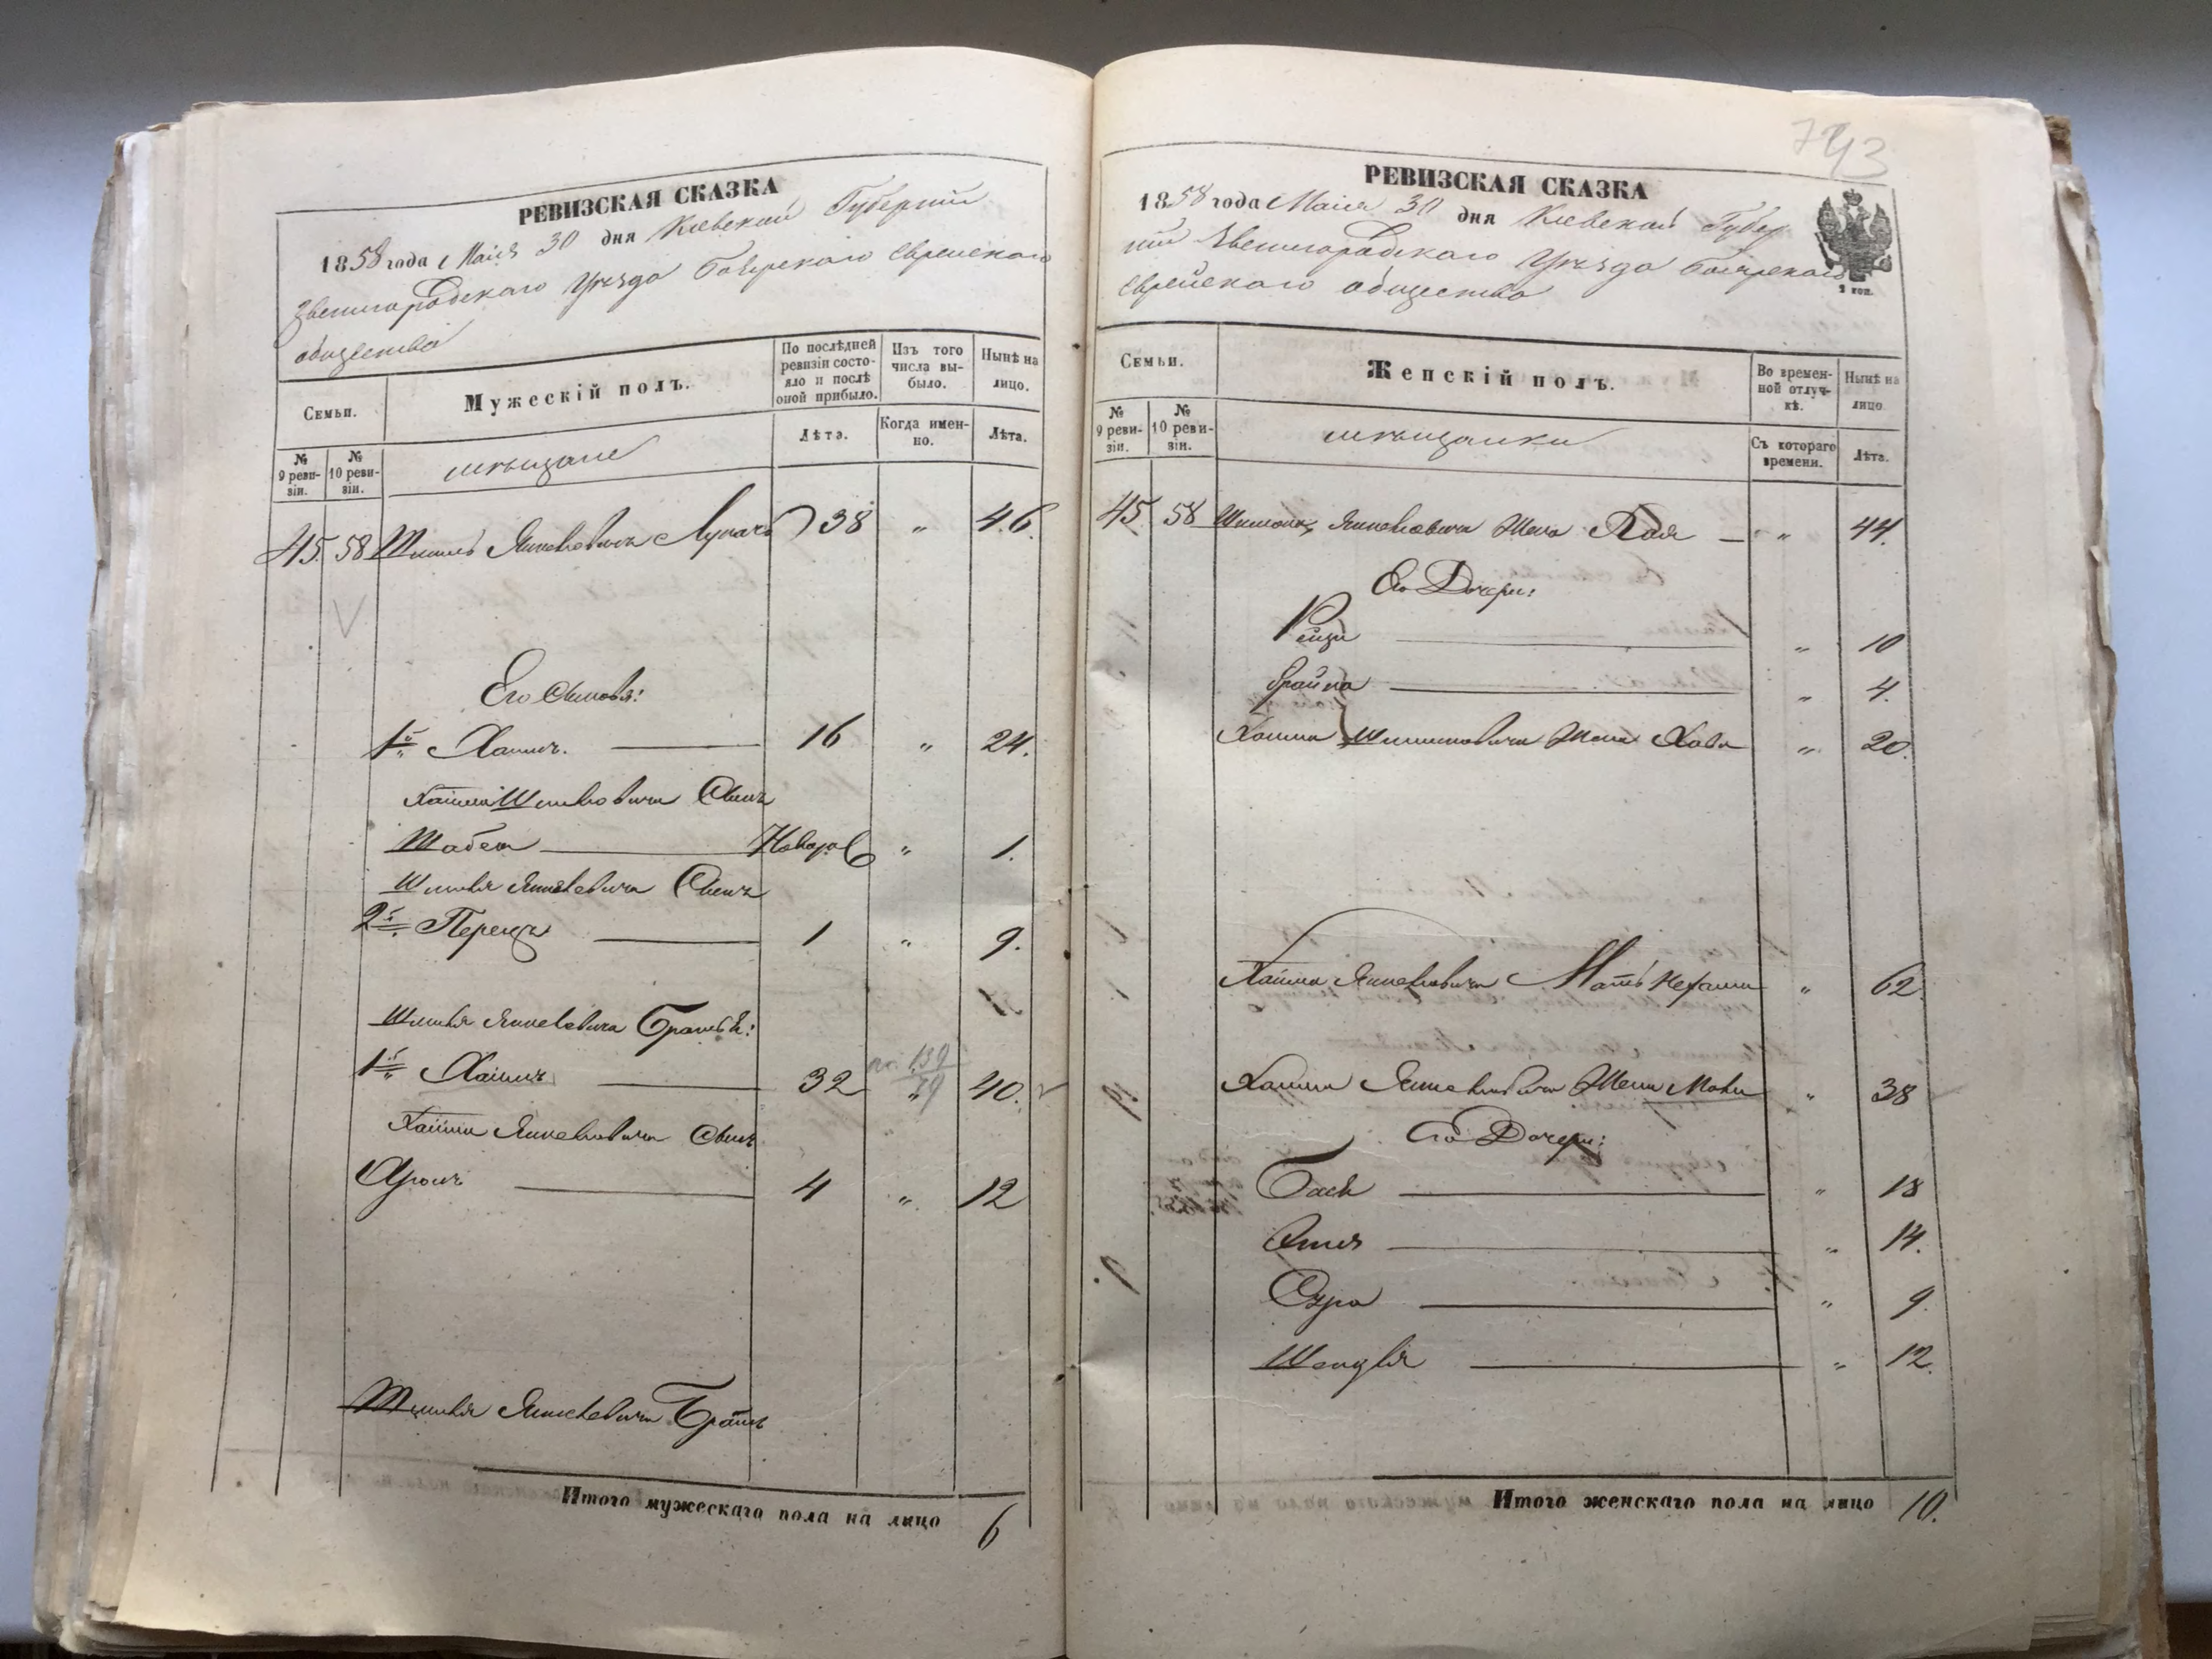 РЕВИЗСКАЯ СКАЗКА
1858 года Маія 30 дня Кіевской Губерніи
Звенигородскаго Уѣзда Боярскаго Еврейскаго
общества
Семьи.
Мужескій полъ.
По послѣдней ревизіи состояло и послѣ оной прибыло.
Изъ того числа выбыло.
Нынѣ на лицо.
№ 9 ревизіи.
№ 10 ревизіи.
мѣщане
Лѣта.
Когда именно.
Лѣта.
45. 58 Янкелевичъ 38 " 46.
Его Сыновья:
1й Хаимъ. 16 " 24.
Хаима Сынъ
Новоро " 1.
Янкелевича Сынъ
2й Перецъ 1 " 9.
Янкелевича Братья:
1й Хаимъ 32 " 40.
139
79
Хаима Янкелевича Сынъ
Аронъ 4 " 12
Янкелевича Братъ
Итого мужескаго пола на лицо 6
743
РЕВИЗСКАЯ СКАЗКА
1858 года Маія 30 дня Кіевской Губер
ніи Звенигородскаго Уѣзда Боярскаго
Еврейскаго общества
2 коп.
Семьи.
Женскій полъ.
Во временной отлучкѣ.
Нынѣ на лицо
№ 9 ревизіи.
№ 10 ревизіи.
мѣщанки
Съ котораго времени.
Лѣта.
45. 58 Янкелевича Жена Хая " 44.
Его Дочери:
" 10
Брайна " 4.
Хаима Жена Хава " 20.
Хаима Янкелевича Мать Нехама " 62.
Хаима Янкелевича Жена " 38
Его Дочери:
Бася " 18
Этя " 14.
Сура " 9.
" 12.
Итого женскаго пола на лицо 10.